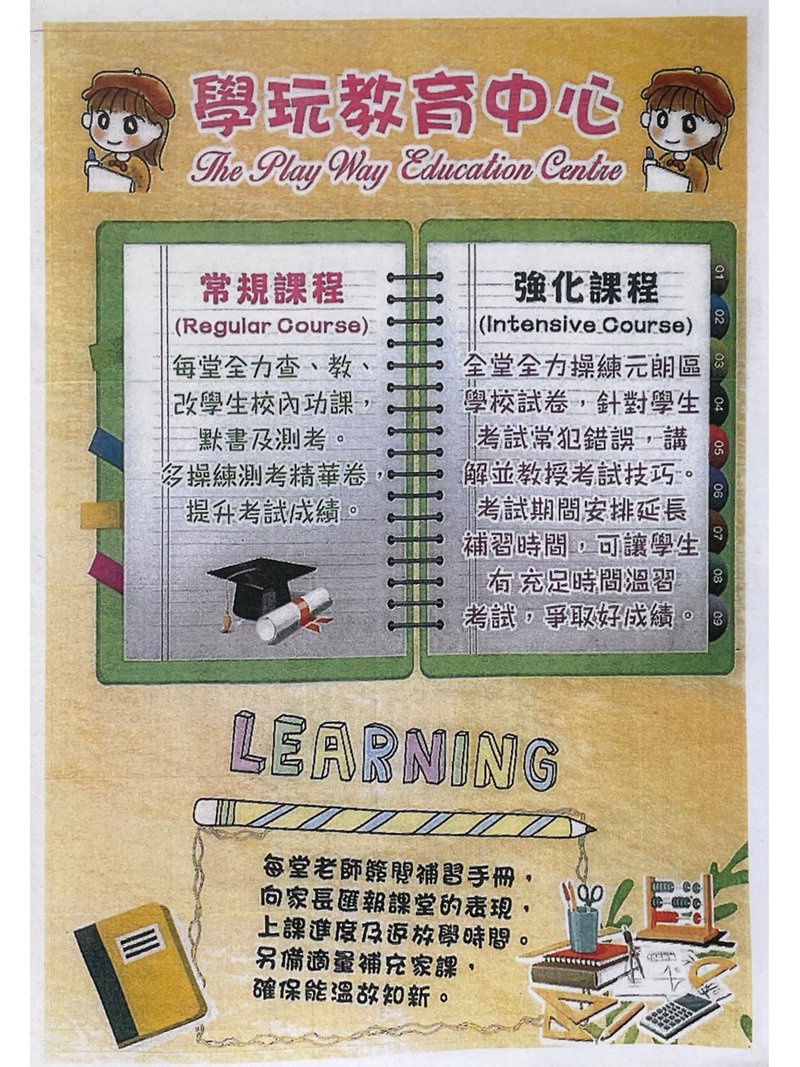 學玩教育中心
The Play Way Education Centre
常規課程
(Regular Course)
每堂全力查、教、
改學生校內功課，
默書及測考。
多操練測考精華卷，
提升考試成績。
強化課程
(Intensive Course)
全堂全力操練元朗區
學校試卷，針對學生
考試常犯錯誤，講
解並教授考試技巧。
考試期間安排延長
補習時間，可讓學生
有充足時間溫習
考試，爭取好成績。
01
02
03
04
05
06
07
08
09
LEARNING
每堂老師簽閱補習手冊，
向家長匯報課堂的表現，
上課進度及返放學時間。
另備適量補充家課，
確保能溫故知新。